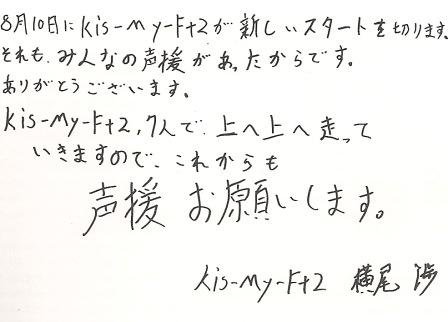 8月10日にkis-My-Ft2が新しいスタートを切ります。
それも、みんなの声援があったからです。
ありがとうございます。
kis-My-Ft2,7人で、上へ上へ走って
いきますので、これからも
声援お願いします。
kis-My-Ft2 横尾 渉